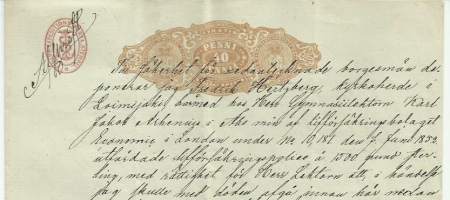 PENNI
40
Till säkerhet för nedantecknade borgesmän de-
ponerar jag Fredrik Hertzberg, kyrkoherde i
Loimijoki härmed hos Herr Gymnasiilektorn Karl
Jakob Arrhenius i Åbo min af lifförsäkringsbolaget
Economic i London under No 10,181 den 7 Juni 1853
utfärdade lifförsäkringspolice å 1500 pund ster-
ling, med rättighet för Herr Lektorn att, i händelse
jag skulle med döden afgå innan här nedan